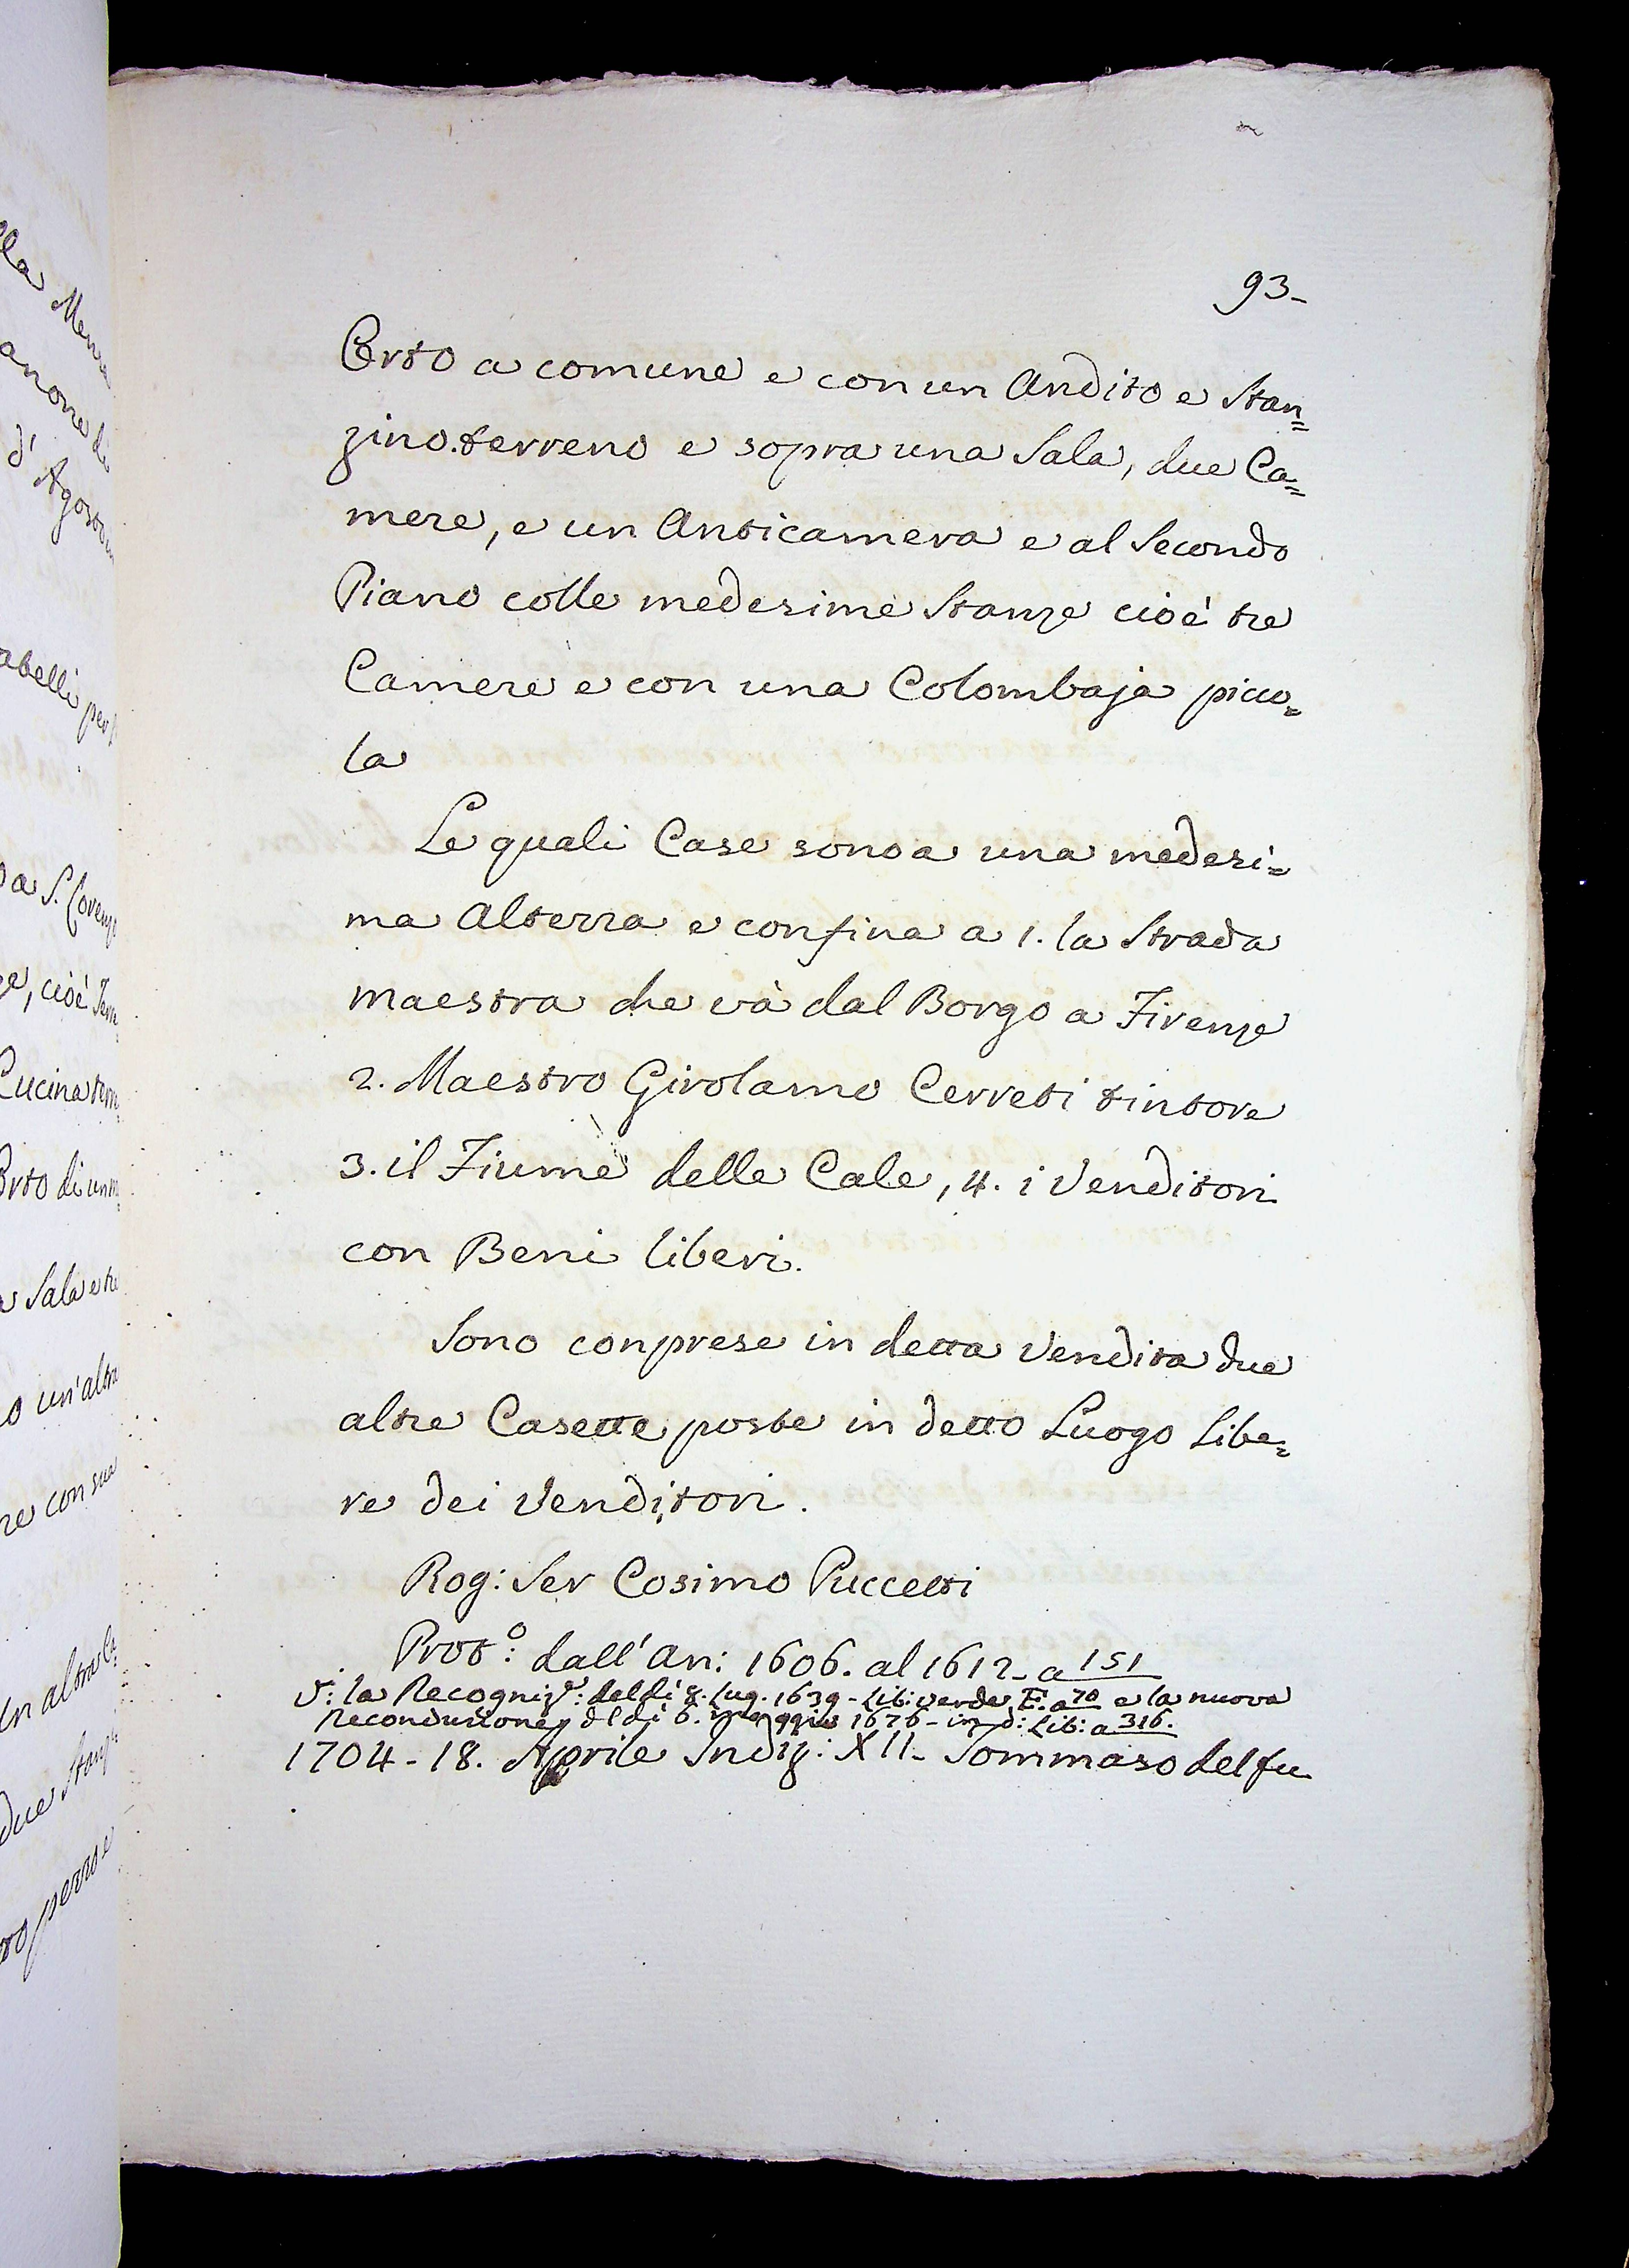 93-
Orto a comune e con un Andito e Stan=
zino terreno e sopra una Sala, due Ca=
mere, e un Anticamera e al Secondo
Piano colle medesime Stanze cioè tre
Camere e con una Colombaja picco=
la
Le quali Case sono a una medesi=
ma Altezza e confina a 1. la Strada
maestra che và dal Borgo a Firenze
2. Maestro Girolamo Cerreti tintore
3. il Fiume delle Cale, 4. i Venditori
con Beni liberi.
Sono conprese in detta Vendita due
altre Casette poste in detto Luogo Libe=
re dei Venditori.
Rog: Ser Cosimo Puccetti
Prot.º: dall'An: 1606. al 1612- a 151
V: la Recogniz.e: del dì 8. Lug. 1639 - Lib: verde E. a 70 e la nuova
Reconduzione del dì 6. Maggio 1676 - in d: Lib: a 316.
1704 - 18. Aprile Indiz: XII- Tommaso del fu